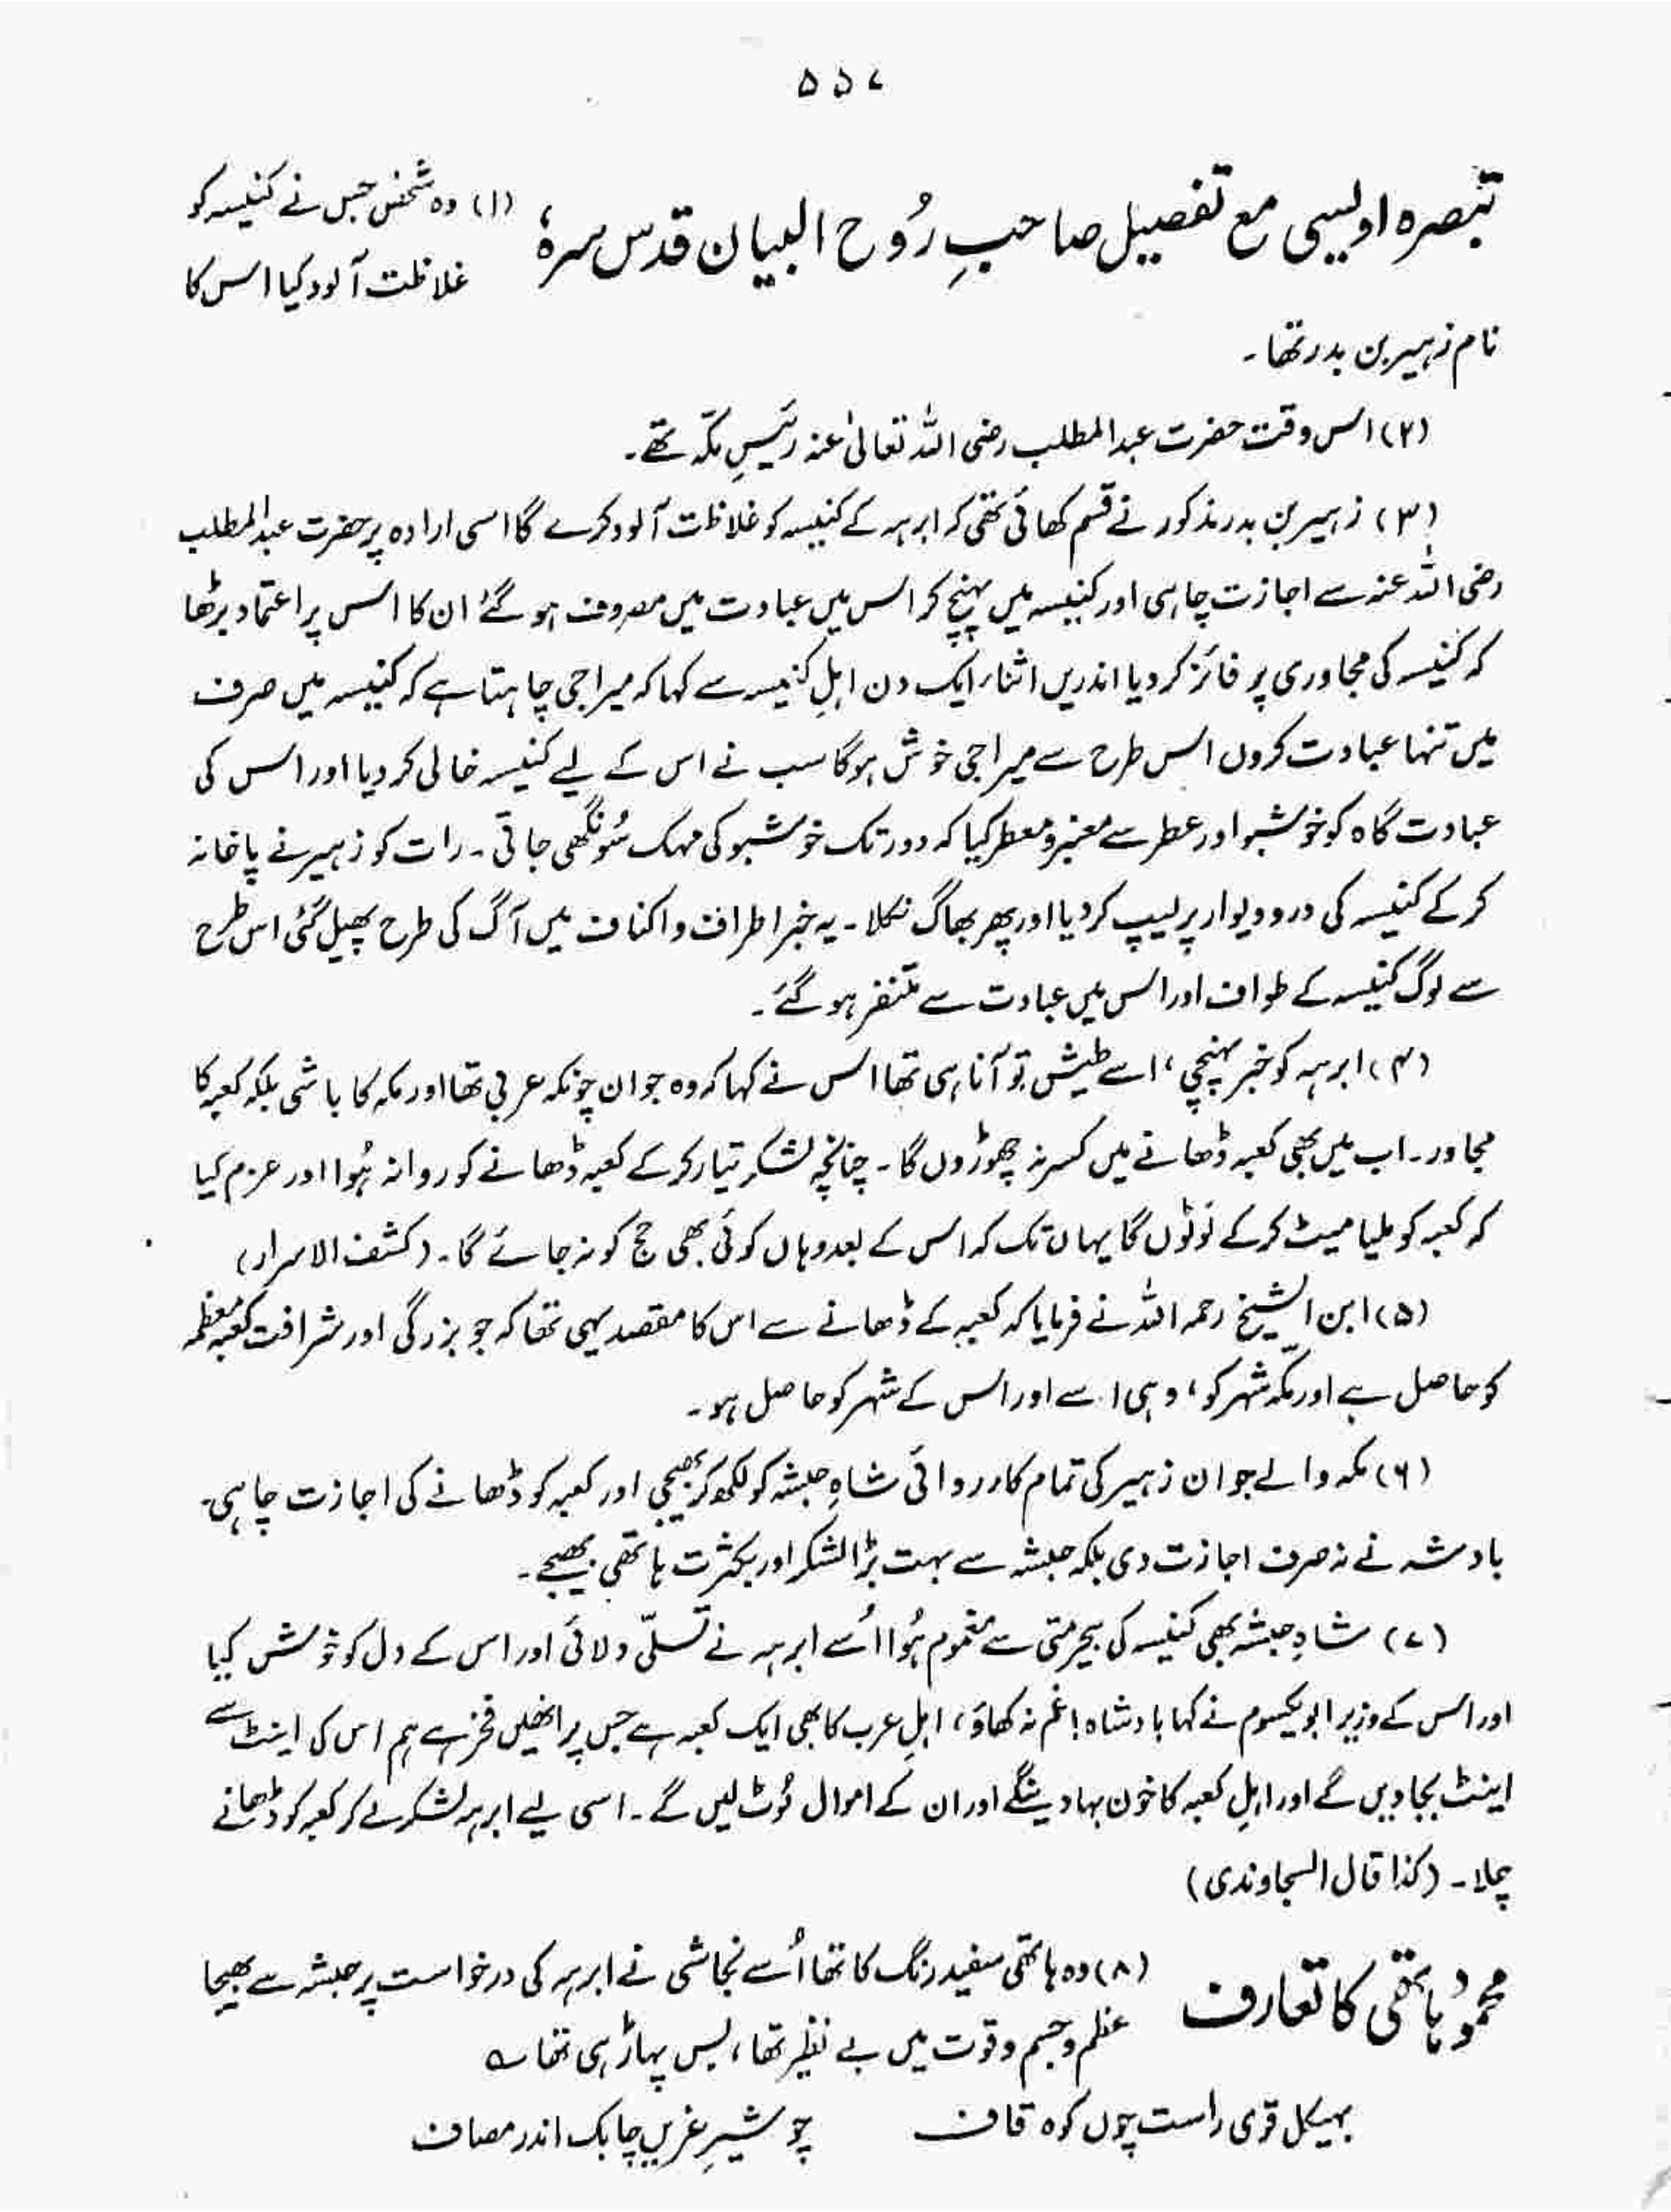 ۵۵۷
تبصرہ اویسی مع تفصیل صاحبِ رُوح البیان قدس سرہٗ
(۱) وہ شخص جس نے کنیسہ کو
غلاظت آلود کیا اس کا
نام زہیر بن بدر تھا۔
(۲) اس وقت حضرت عبدالمطلب رضی اللہ تعالیٰ عنہ رئیسِ مکّہ تھے۔
(۳) زہیر بن بدر مذکور نے قسم کھائی تھی کہ ابرہہ کے کنیسہ کو غلاظت آلود کرے گا اسی ارادہ پر حضرت عبدالمطلب
رضی اللہ عنہ سے اجازت چاہی اور کنیسہ میں پہنچ کر اس میں عبادت میں مصروف ہو گئے ان کا اس پر اعتماد بڑھا
کہ کنیسہ کی مجاوری پر فائز کر دیا اندریں اثناء ایک دن اہلِ کنیسہ سے کہا کہ میرا جی چاہتا ہے کہ کنیسہ میں صرف
میں تنہا عبادت کروں اس طرح سے میرا جی خوش ہو گا سب نے اس کے لیے کنیسہ خالی کر دیا اور اس کی
عبادت گاہ کو خوشبو اور عطر سے معنبر و معطر کیا کہ دور تک خوشبو کی مہک سُونگھی جاتی۔ رات کو زہیر نے پاخانہ
کر کے کنیسہ کی در و دیوار پر لیپ کر دیا اور پھر بھاگ نکلا۔ یہ خبر اطراف و اکناف میں آگ کی طرح پھیل گئی اس طرح
سے لوگ کنیسہ کے طواف اور اس میں عبادت سے متنفر ہو گئے۔
(۴) ابرہہ کو خبر پہنچی، اسے طیش تو آنا ہی تھا اس نے کہا کہ وہ جوان چونکہ عربی تھا اور مکہ کا باشی بلکہ کعبہ کا
مجاور۔ اب میں بھی کعبہ ڈھانے میں کسر نہ چھوڑوں گا۔ چنانچہ لشکر تیار کر کے کعبہ ڈھانے کو روانہ ہُوا اور عزم کیا
کہ کعبہ کو ملیا میٹ کر کے لَوٹوں گا یہاں تک کہ اس کے بعد وہاں کوئی بھی حج کو نہ جائے گا۔ (کشف الاسرار)
(۵) ابن الشیخ رحمہ اللہ نے فرمایا کہ کعبہ کے ڈھانے سے اس کا مقصد یہی تھا کہ جو بزرگی اور شرافت کعبہ معظمہ
کو حاصل ہے اور مکّہ شہر کو، وہی اسے اور اس کے شہر کو حاصل ہو۔
(۶) مکہ والے جوان زہیر کی تمام کارروائی شاہِ حبشہ کو لکھ کر بھیجی اور کعبہ کو ڈھانے کی اجازت چاہی۔
بادشہ نے نہ صرف اجازت دی بلکہ حبشہ سے بہت بڑا لشکر اور بکثرت ہاتھی بھیجے۔
(۷) شاہِ حبشہ بھی کنیسہ کی بیحرمتی سے مغموم ہُوا اُسے ابرہہ نے تسلّی دلائی اور اس کے دل کو خوش کیا
اور اس کے وزیر ابو یکسوم نے کہا بادشاہ! غم نہ کھاؤ، اہلِ عرب کا بھی ایک کعبہ ہے جس پر انھیں فخر ہے ہم اس کی اینٹ سے
اینٹ بجا دیں گے اور اہلِ کعبہ کا خون بہا دینگے اور ان کے اموال لُوٹ لیں گے۔ اسی لیے ابرہہ لشکر لے کر کعبہ کو ڈھانے
چلا۔ (کذا قال السجاوندی)
محمود ہاتھی کا تعارف
(۸) وہ ہاتھی سفید رنگ کا تھا اُسے نجاشی نے ابرہہ کی درخواست پر حبشہ سے بھیجا
عظم و جسم و قوت میں بے نظیر تھا، بس پہاڑ ہی تھا ؎
بہیکل قوی راست چوں کوہ قاف
چو شیرِ غریں چابک اندر مصاف